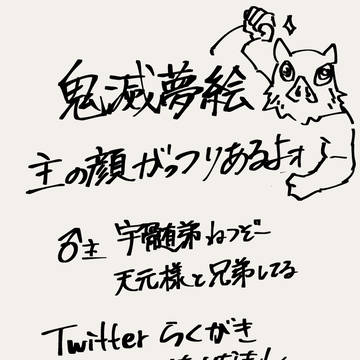 鬼滅夢絵
主の顔がっつりあるよォ
♂主 宇髄弟ねつぞー
天元様と兄弟してる
Twitterらくがき